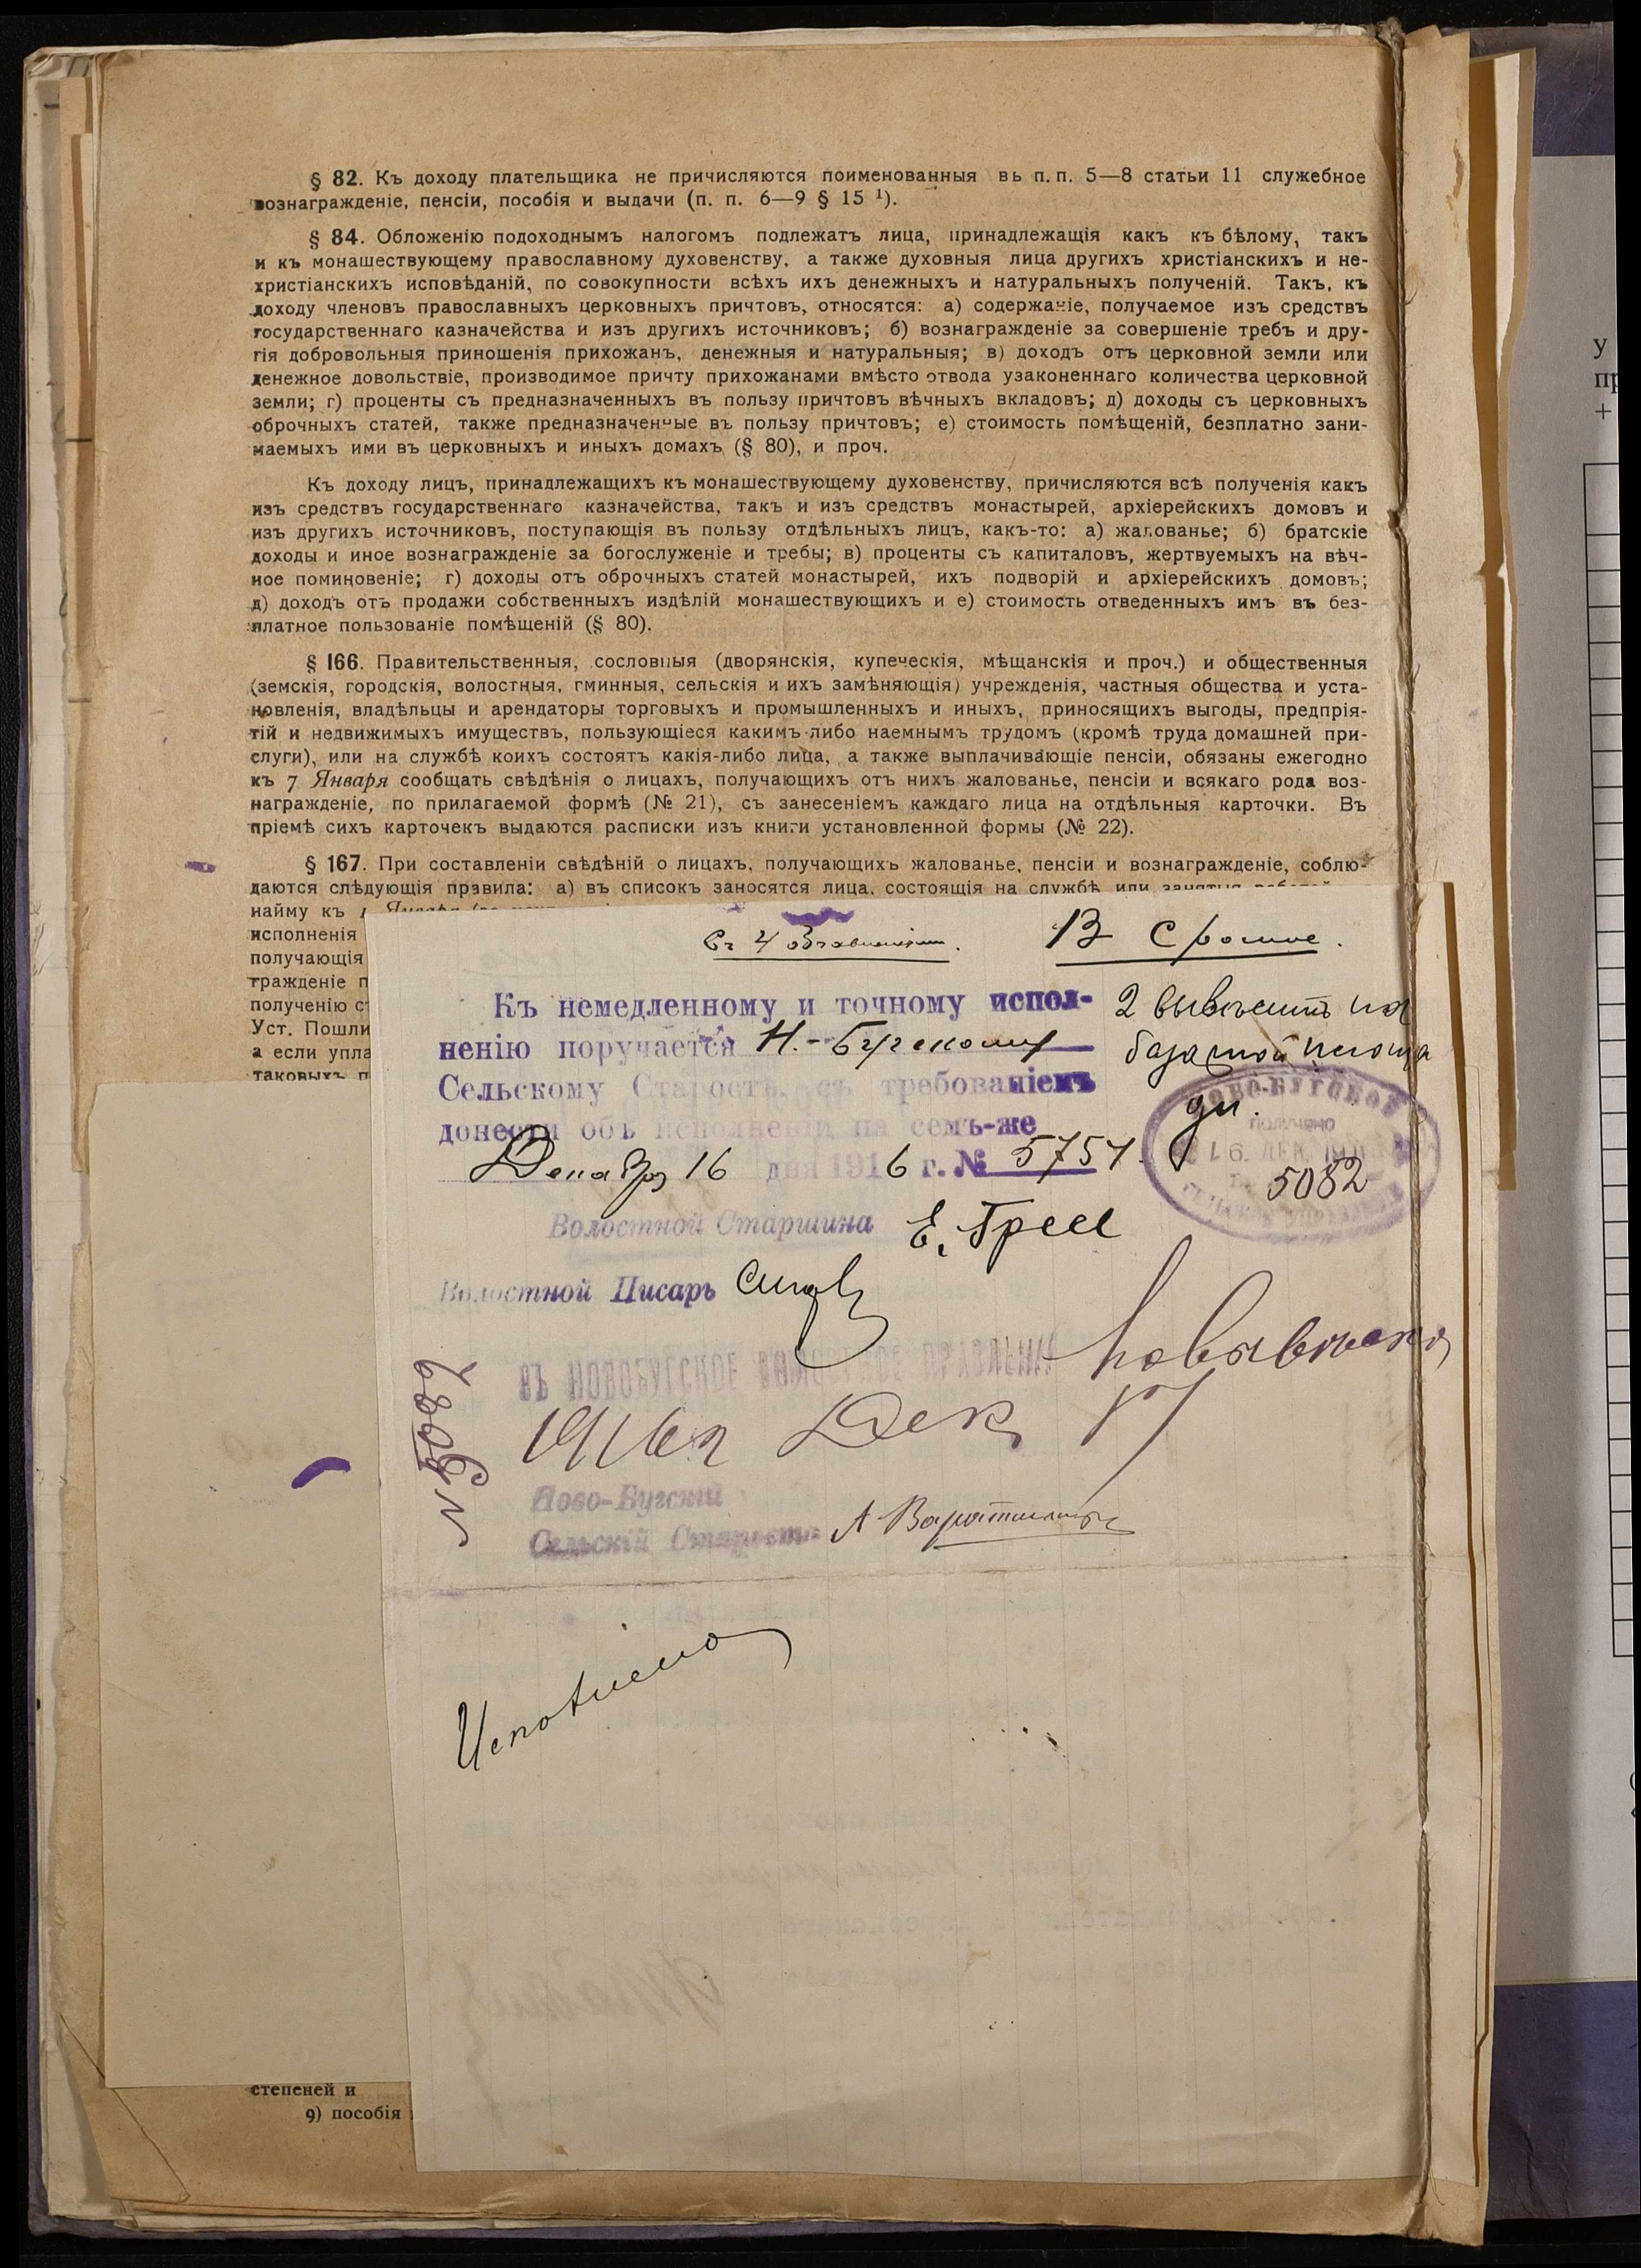 § 82. Къ доходу плательщика не причисляются поименованныя вь п. п. 5—8 статьи 11 служебное
вознагражденіе, пенсіи, пособія и выдачи (п. п. 6—9 § 15 ¹).
§ 84. Обложенію подоходнымъ налогомъ подлежатъ лица, принадлежащія какъ къ бѣлому, такъ
и къ монашествующему православному духовенству, а также духовныя лица другихъ христіанскихъ и не-
христіанскихъ исповѣданій, по совокупности всѣхъ ихъ денежныхъ и натуральныхъ полученій. Такъ, къ
доходу членовъ православныхъ церковныхъ причтовъ, относятся: а) содержаніе, получаемое изъ средствъ
государственнаго казначейства и изъ другихъ источниковъ; б) вознагражденіе за совершеніе требъ и дру-
гія добровольныя приношенія прихожанъ, денежныя и натуральныя; в) доходъ отъ церковной земли или
денежное довольствіе, производимое причту прихожанами вмѣсто отвода узаконеннаго количества церковной
земли; г) проценты съ предназначенныхъ въ пользу причтовъ вѣчныхъ вкладовъ; д) доходы съ церковныхъ
оброчныхъ статей, также предназначенные въ пользу причтовъ; е) стоимость помѣщеній, безплатно зани-
маемыхъ ими въ церковныхъ и иныхъ домахъ (§ 80), и проч.
Къ доходу лицъ, принадлежащихъ къ монашествующему духовенству, причисляются всѣ полученія какъ
изъ средствъ государственнаго казначейства, такъ и изъ средствъ монастырей, архіерейскихъ домовъ и
изъ другихъ источниковъ, поступающія въ пользу отдѣльныхъ лицъ, какъ-то: а) жалованье; б) братскіе
доходы и иное вознагражденіе за богослуженіе и требы; в) проценты съ капиталовъ, жертвуемыхъ на вѣч-
ное поминовеніе; г) доходы отъ оброчныхъ статей монастырей, ихъ подворій и архіерейскихъ домовъ;
д) доходъ отъ продажи собственныхъ издѣлій монашествующихъ и е) стоимость отведенныхъ имъ въ без-
платное пользованіе помѣщеній (§ 80).
§ 166. Правительственныя, сословныя (дворянскія, купеческія, мѣщанскія и проч.) и общественныя
(земскія, городскія, волостныя, гминныя, сельскія и ихъ замѣняющія) учрежденія, частныя общества и уста-
новленія, владѣльцы и арендаторы торговыхъ и промышленныхъ и иныхъ, приносящихъ выгоды, предпрія-
тій и недвижимыхъ имуществъ, пользующіеся какимъ-либо наемнымъ трудомъ (кромѣ труда домашней при-
слуги), или на службѣ коихъ состоятъ какія-либо лица, а также выплачивающіе пенсіи, обязаны ежегодно
къ 7 Января сообщать свѣдѣнія о лицахъ, получающихъ отъ нихъ жалованье, пенсіи и всякаго рода воз-
награжденіе, по прилагаемой формѣ (№ 21), съ занесеніемъ каждаго лица на отдѣльныя карточки. Въ
пріемѣ сихъ карточекъ выдаются расписки изъ книги установленной формы (№ 22).
§ 167. При составленіи свѣдѣній о лицахъ, получающихъ жалованье, пенсіи и вознагражденіе, соблю-
даются слѣдующія правила: а) въ списокъ заносятся лица, состоящія на службѣ или
найму къ
исполненія
получающія
гражденіе п
полученію
Уст. Пошли
а если упла
таковыхъ п
Къ немедленному и точному испол-
ненію поручается Н.-Бугскому
Сельскому Старостѣ съ требованіемъ
донести объ исполненіи на семъ-же
Декабря 16 дня 1916 г. № 5754.
2 вывѣсить на
базарной площа
ди.
НОВО-БУГСКОЕ
ПОЛУЧЕНО
16. ДЕК. 191
5082
Волостной Старшина
Волостной Писарь
ВЪ НОВОБУГСКОЕ ВОЛОСТНОЕ ПРАВЛЕНІЕ
1916 г Дек 17
№ 5082
Ново-Бугскій
Сельскій Староста
Исполнено
степеней и
9) пособія